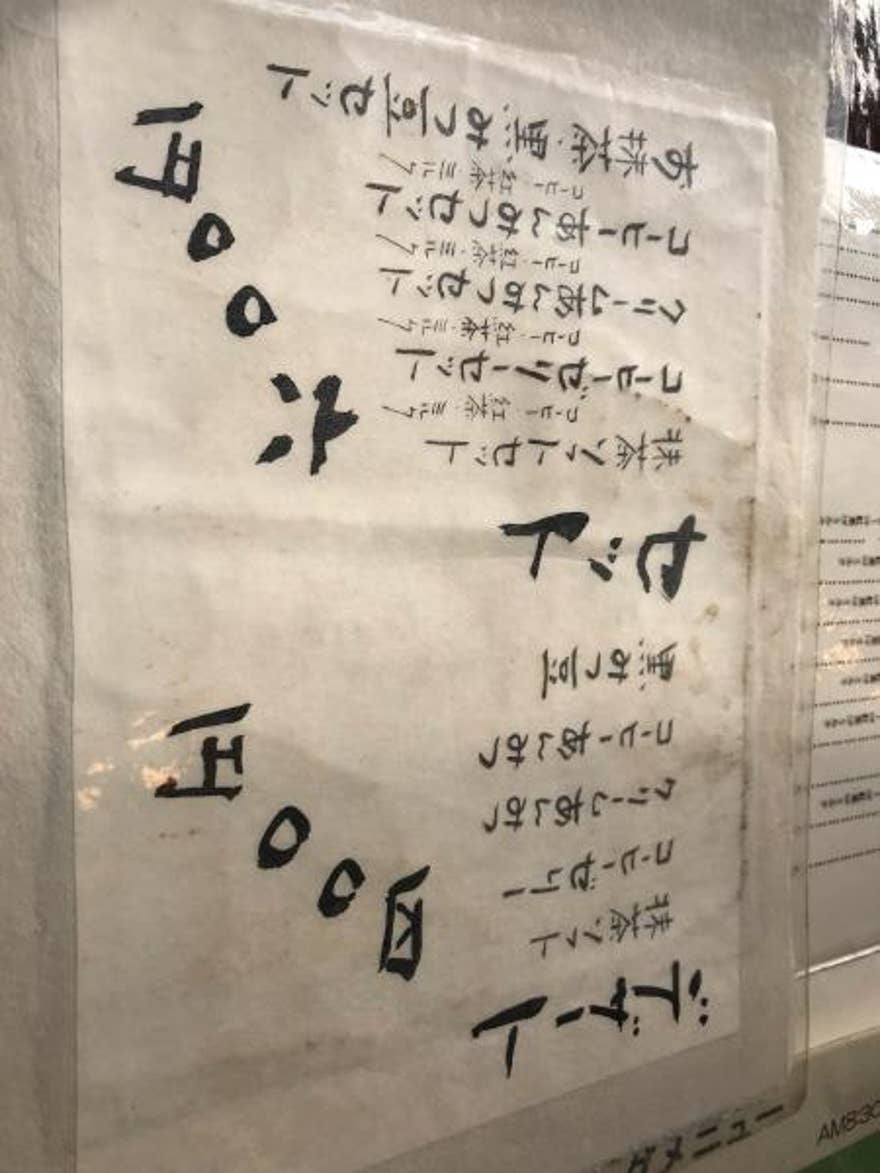 デザート
抹茶ソフト
コーヒーゼリー
クリームあんみつ
コーヒーあんみつ
黒みつ豆
四〇〇円
セット
抹茶ソフトセット
コーヒー・紅茶・ミルク
コーヒーゼリーセット
コーヒー・紅茶・ミルク
クリームあんみつセット
コーヒー・紅茶・ミルク
コーヒーあんみつセット
コーヒー・紅茶・ミルク
お抹茶 黒みつ豆セット
六〇〇円
メニュー